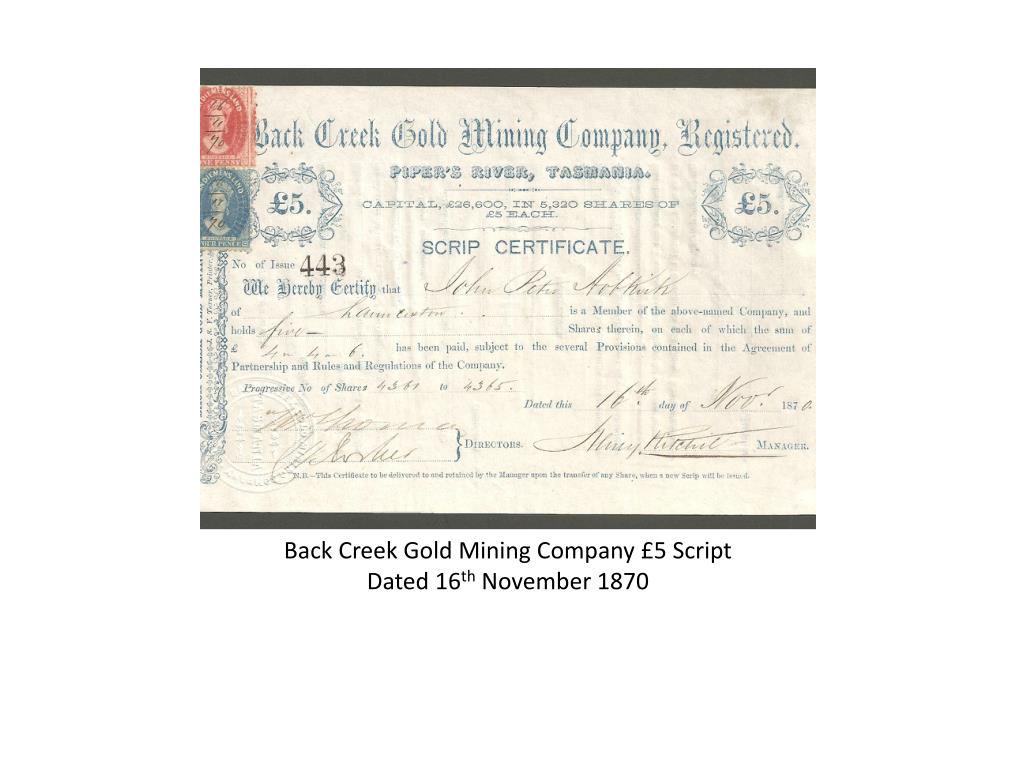 Back Creek Gold Mining Company, Registered.
PIPER'S RIVER, TASMANIA.
£5.
£5.
CAPITAL, £26,600, IN 5,320 SHARES OF
£5 EACH.
SCRIP CERTIFICATE.
No of Issue 443
We Hereby Certify that John Peter Hobkirk
of Launceston is a Member of the above-named Company, and
holds five Shares therein, on each of which the sum of
£ 4 4 6. has been paid, subject to the several Provisions contained in the Agreement of
Partnership and Rules and Regulations of the Company.
Progressive No of Shares 4361 to 4365.
Dated this 16th day of Novr 1870.
DIRECTORS.
MANAGER.
N.B.—This Certificate to be delivered to and retained by the Manager upon the transfer of any Share, when a new Scrip will be issued.
ONE PENNY
FOUR PENCE
16
11
70
Back Creek Gold Mining Company £5 Script
Dated 16th November 1870